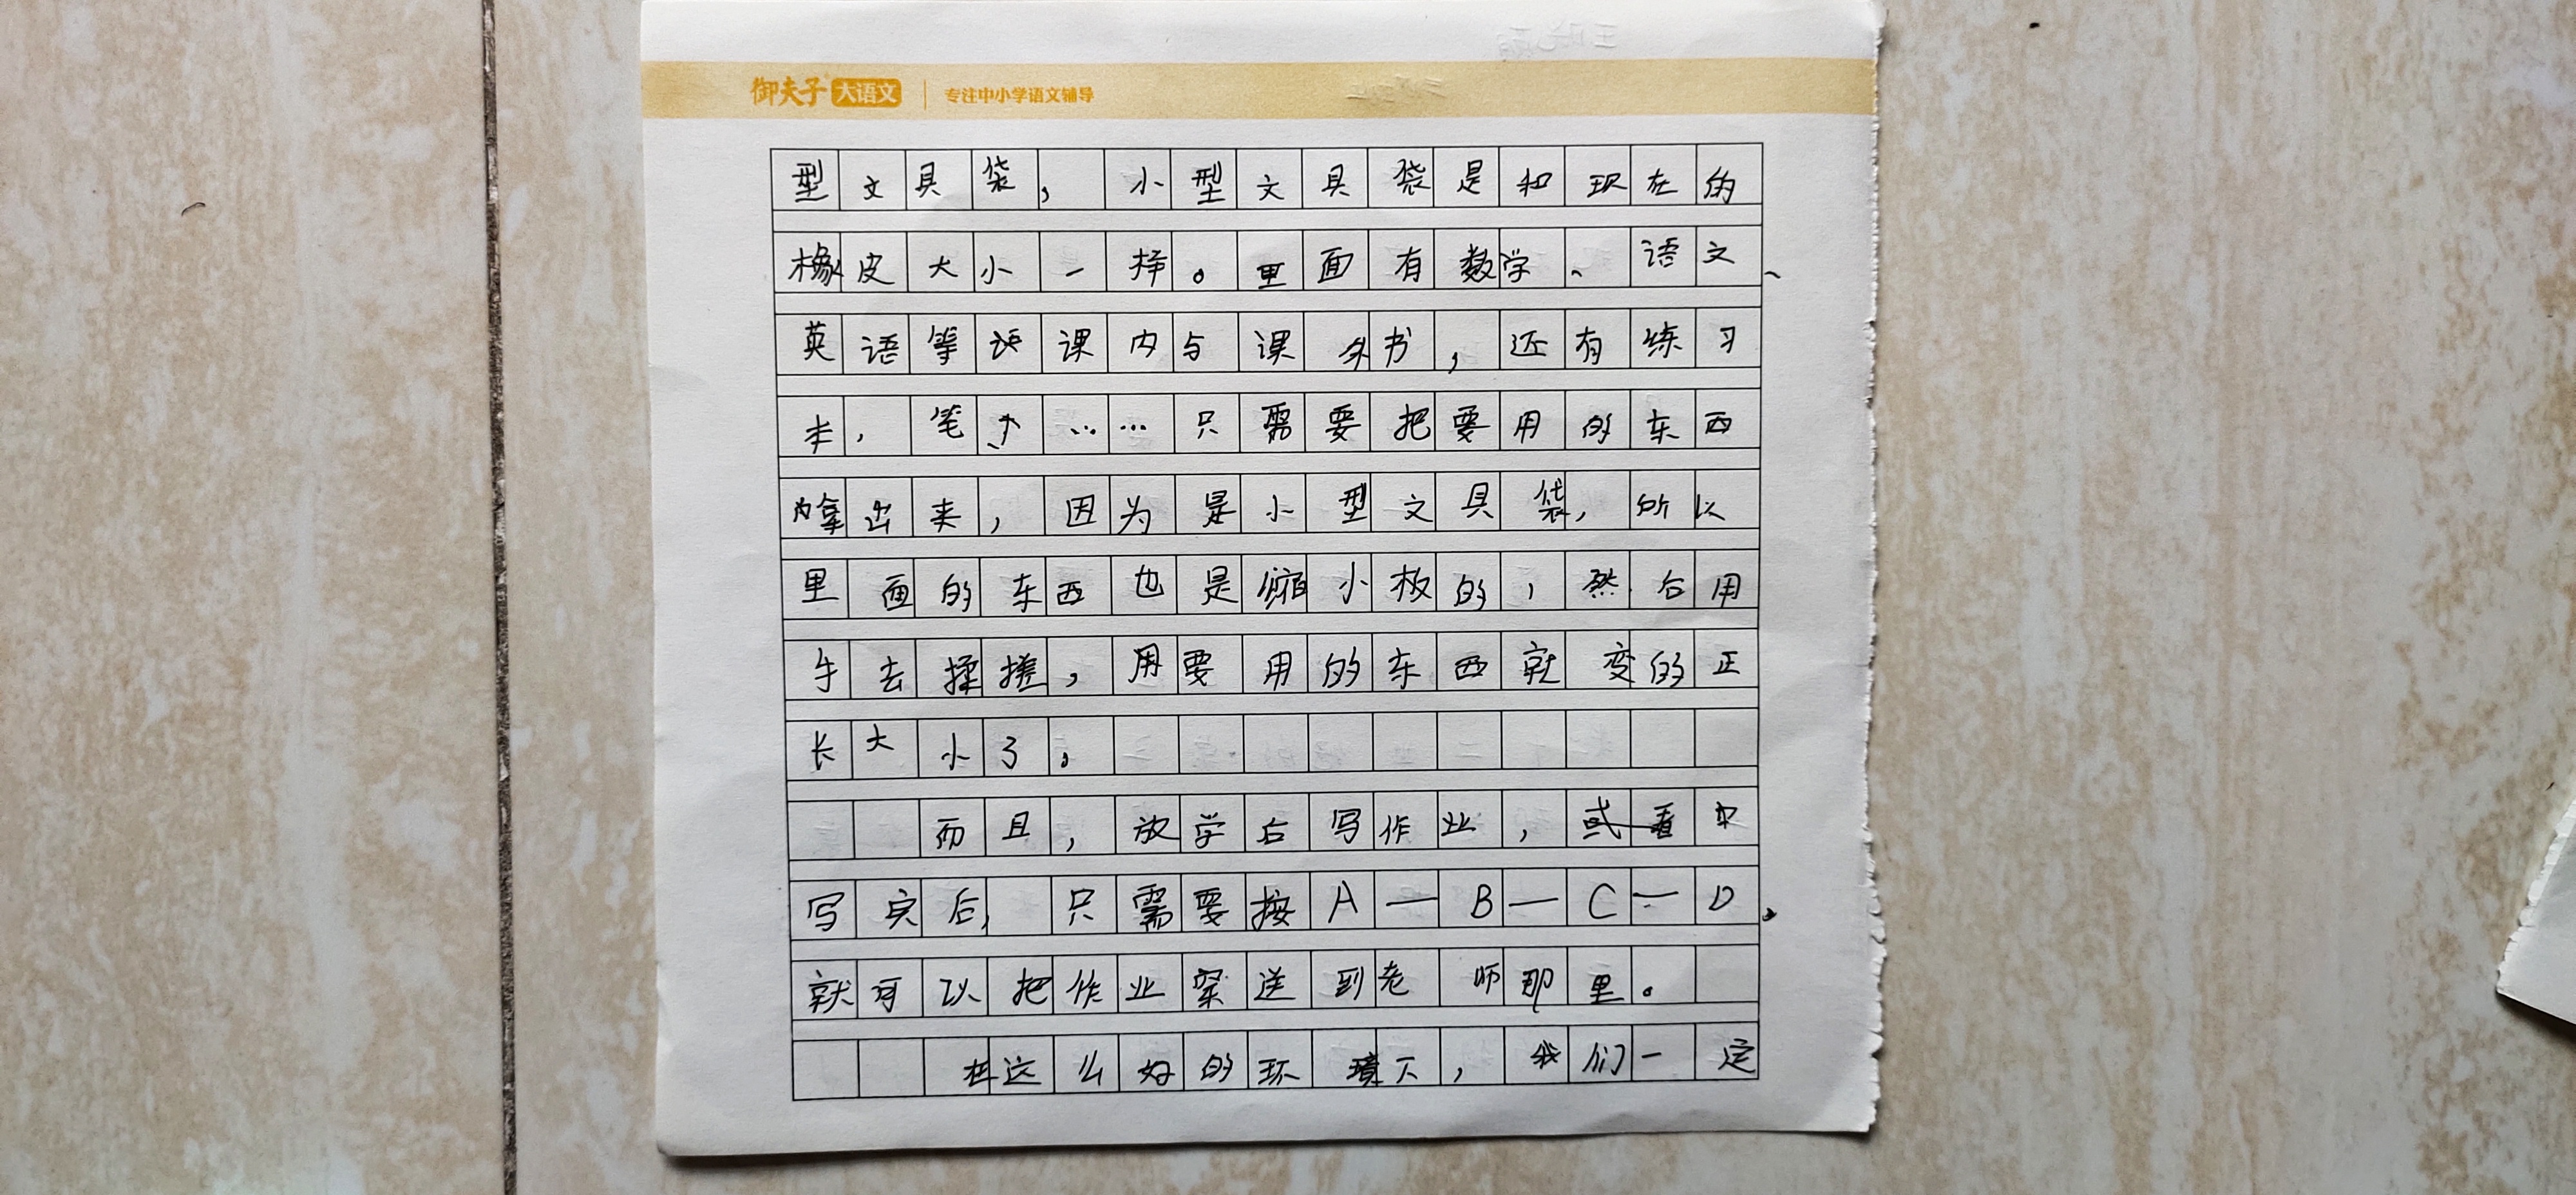 御夫子 大语文 专注中小学语文辅导
型文具袋，小型文具袋是和现在的
橡皮大小一样。里面有数学、语文、
英语等课内与课外书，还有练习
本，笔……只需要把要用的东西
拿出来，因为是小型文具袋，所以
里面的东西也是缩小板的，然后用
手去揉搓，用要用的东西就变的正
长大小了。
而且，放学后写作业，或看
写完后，只需要按A—B—C—D，
就可以把作业送到老师那里。
在这么好的环境下，我们一定